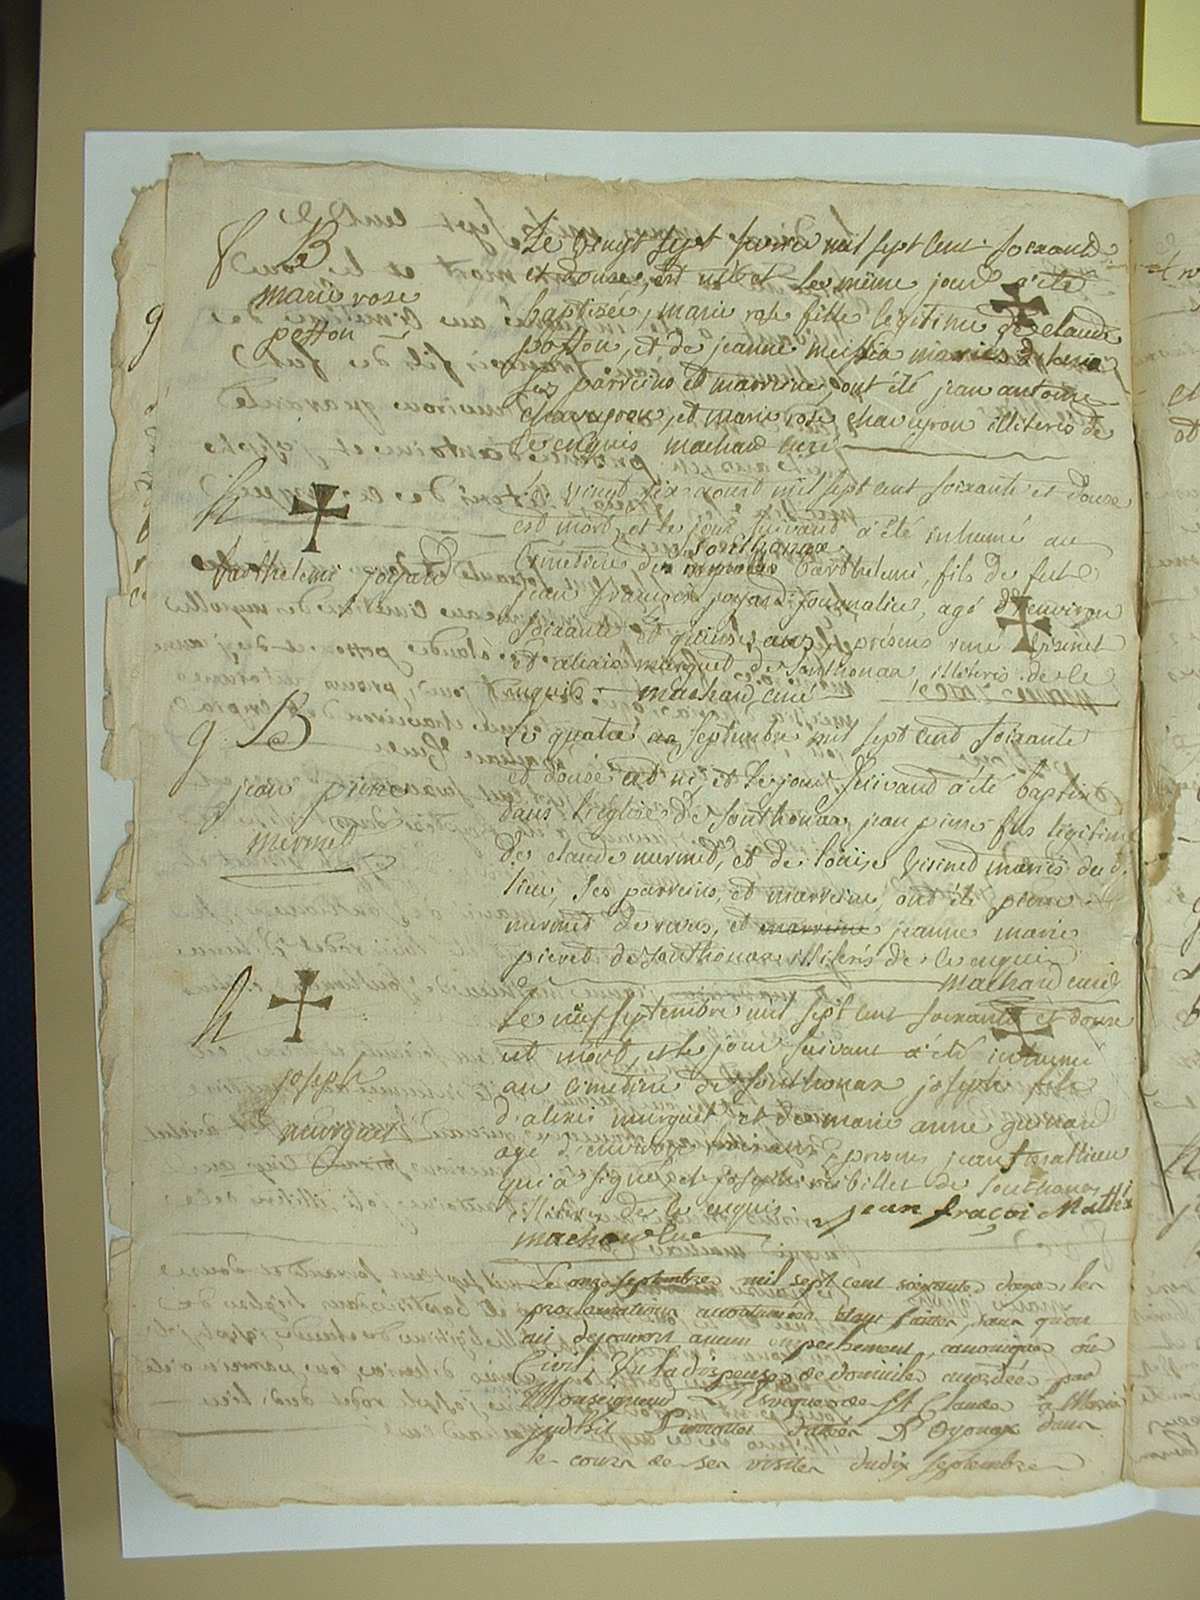 8 B
marie rose
posson
Le vingt sept mil sept cent soixante
et douse, est née et le même jour a été
baptisée, marie rose fille legitime de claude
posson, et de jeanne mariés
ses parreins et marreine, ont été jean antoine
chavayron, et marie rose chavayron illiterés de
ce enquis machard curé
h
barthelemi joyard
Le vingt six aoust mil sept cent soixante et douse
est mord, et le jour suivand a été inhumé au
Cimetiere de sonthonax barthelemi, fils de fut
jean françois joyard, agé d'environ
soixante et quinse ans, présens rené visinet
et alexis murguet de sonthonax, illiterés de ce
enquis machard curé
9 B
jean pierre
mermed
Le quatre septembre mil sept cent soixante
et douse est né, et le jour suivand a été baptisé
dans l'eglise de sonthonax jean pierre fils légitime
de claude mermed, et de loüise visined mariés du d.
lieu, ses parreins, et marreine, ont été pierre
mermed de, et marreine jeanne marie
piered de sonthonax illiterés de ce enquis
machard curé
h
joseph
murguet
Le neuf septembre mil sept cent soixante et douse
est mord, et le jour suivant a été inhumé
au cimetiere de sonthonax joseph fils
d'alexis murguet et de marie anne guinard
agé d'environ ans, présens jean f. mathieu
qui a signé et joseph de sonthonax
illiteré de ce enquis jean fraçoi Mathi
machard curé
Le onze septembre mil sept cent soixante douze les
proclamations accoutumées étant faites, sans qu'on
ait découvert aucun empechement, canonique ou
Civil, Vu la dispense de domicile accordée par
Monseigneur L'Evêque de St Claude à Marie
judhit d'Oyonax dans
le cours de ses visites du dix septembre